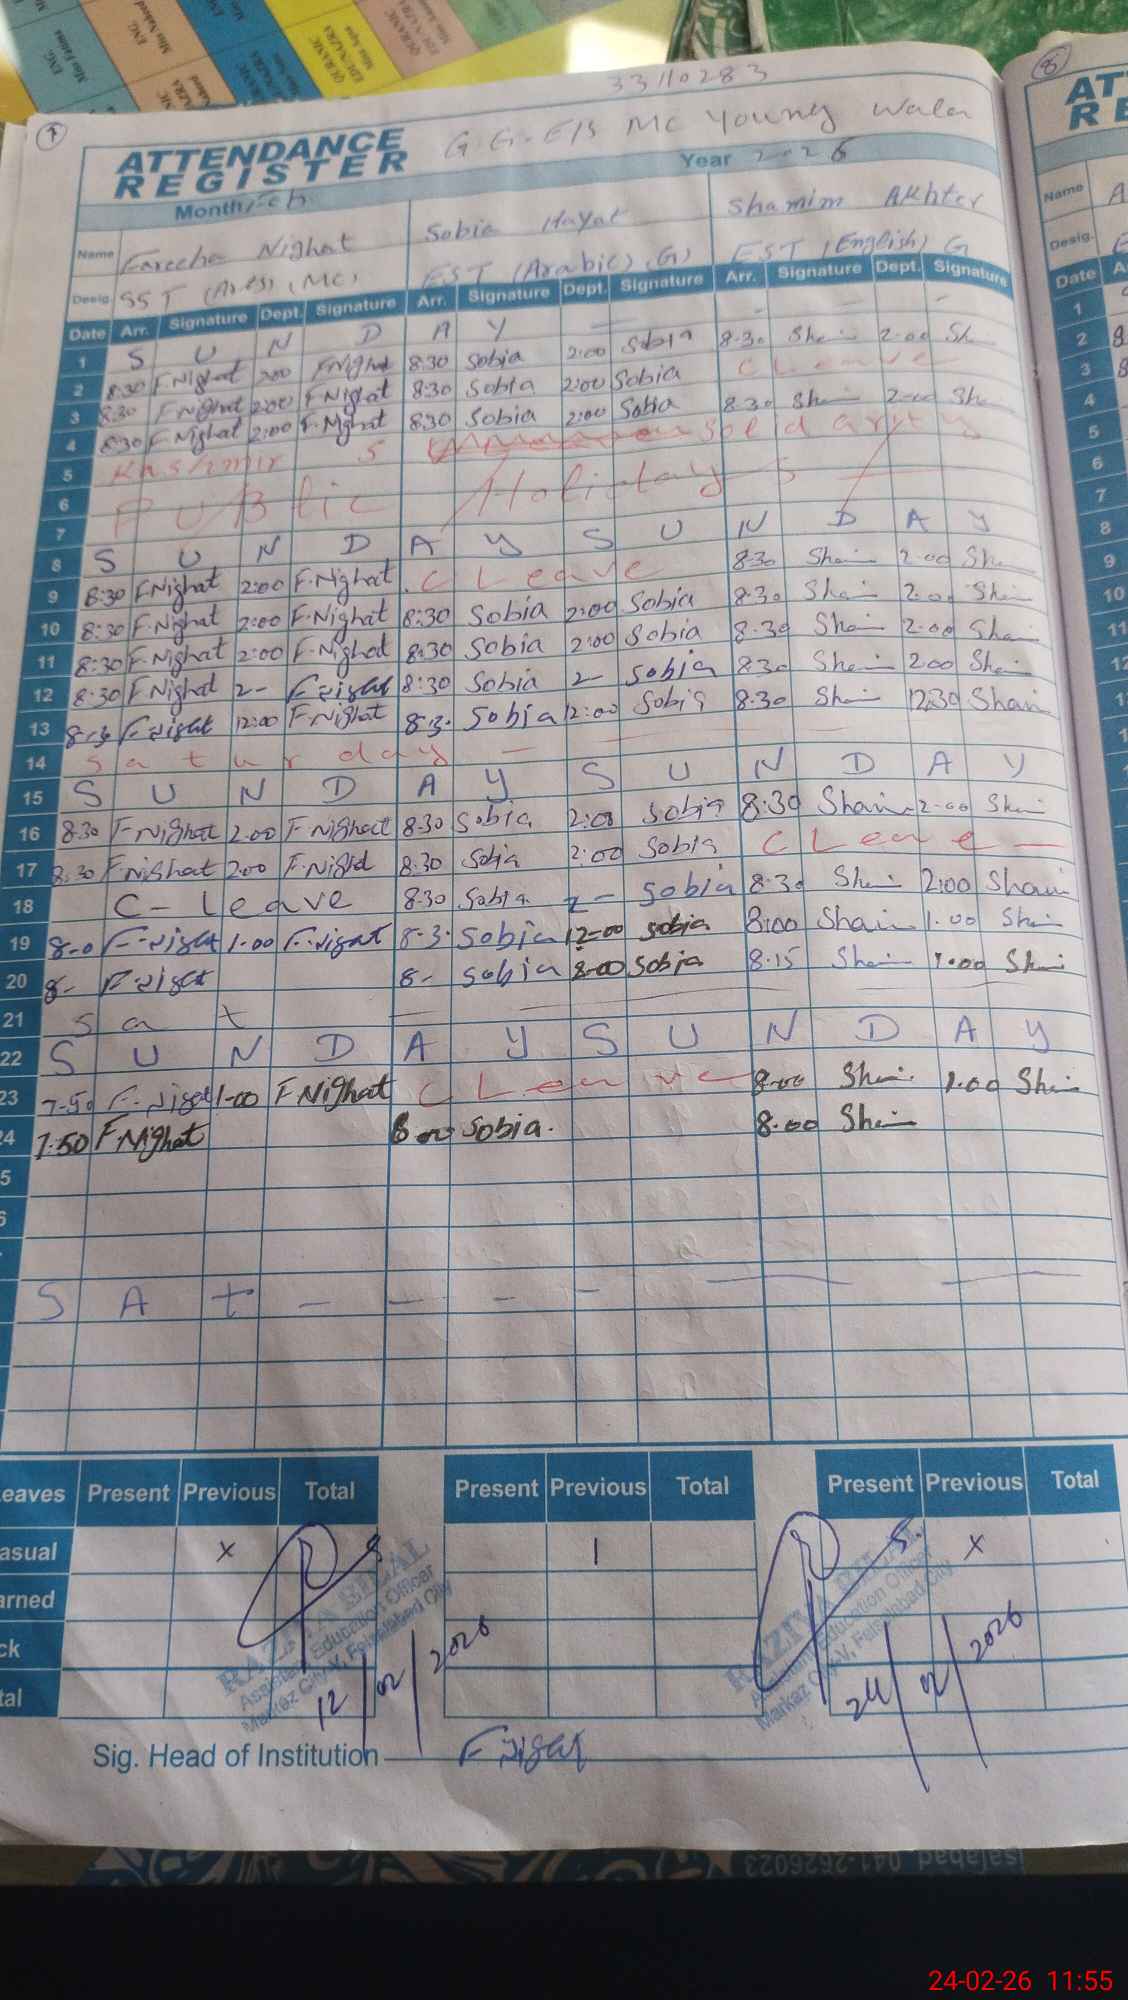 33110283
G.G.E/S MC Young Wala
ATTENDANCE REGISTER
Month Feb Year 2026
Name Fareeha Nighat Sobia Hayat Shamim Akhter
Desig. SST (MC) EST (Arabic) (G) EST (English) G
Date Arr. Signature Dept. Signature Arr. Signature Dept. Signature Arr. Signature Dept. Signature
1 S U N D A Y
2 8:30 F Nighat 2:00 F Nighat 8:30 Sobia 2:00 Sobia 8:30 Sham 2:00 Sh
3 8:30 F Nighat 2:00 F Nighat 8:30 Sobia 2:00 Sobia C Leave
4 8:30 F Nighat 2:00 F Nighat 8:30 Sobia 2:00 Sobia 8:30 Sham 2:00 Sham
5 Kashmir S Solidarity
6 Public Holidays
7
8 S U N D A Y S U N D A Y
9 8:30 F Nighat 2:00 F. Nighat C Leave 8:30 Sham 2:00 Sham
10 8:30 F. Nighat 2:00 F. Nighat 8:30 Sobia 2:00 Sobia 8:30 Sham 2:00 Sham
11 8:30 F. Nighat 2:00 F. Nighat 8:30 Sobia 2:00 Sobia 8:30 Sham 2:00 Sham
12 8:30 F Nighat 2- F Nighat 8:30 Sobia 2- Sobia 8:30 Sham 2:00 Sham
13 8:30 F Nighat 12:00 F Nighat 8:3. Sobia 12:00 Sobia 8:30 Sham 12:30 Sham
14 Saturday -
15 S U N D A Y S U N D A Y
16 8:30 F Nighat 2:00 F Nighat 8:30 Sobia 2:00 Sobia 8:30 Sham 2:00 Sham
17 8:30 F Nighat 2:00 F. Nighat 8:30 Sobia 2:00 Sobia C Leave -
18 C- Leave 8:30 Sobia 2- Sobia 8:30 Sham 2:00 Sham
19 8-0 F. Nighat 1:00 F. Nighat 8-3. Sobia 12:00 Sobia 8:00 Sham 1:00 Sham
20 8- F. Nighat 8- Sobia 8:00 Sobia 8:15 Sham 1:00 Sham
21 Sat
22 S U N D A Y S U N D A Y
23 7-50 F. Nighat 1:00 F Nighat C Leave 8:00 Sham 1:00 Sham
24 7:50 F Nighat 8:00 Sobia. 8:00 Sham
S A t - - - -
Leaves Present Previous Total Present Previous Total Present Previous Total
Casual x 1 x
RAZIA BILAL
Assistant Education Officer
Markaz City-V, Faisalabad City
12/02/2026
RAZIYA BILAL
Assistant Education Officer
Markaz City-V, Faisalabad City
24/02/2026
Sig. Head of Institution F Nighat
8
ATT
RE
Name
Desig.
Date
1
2
3
4
5
6
7
8
9
10
11
12
041-2626023
24-02-26 11:55